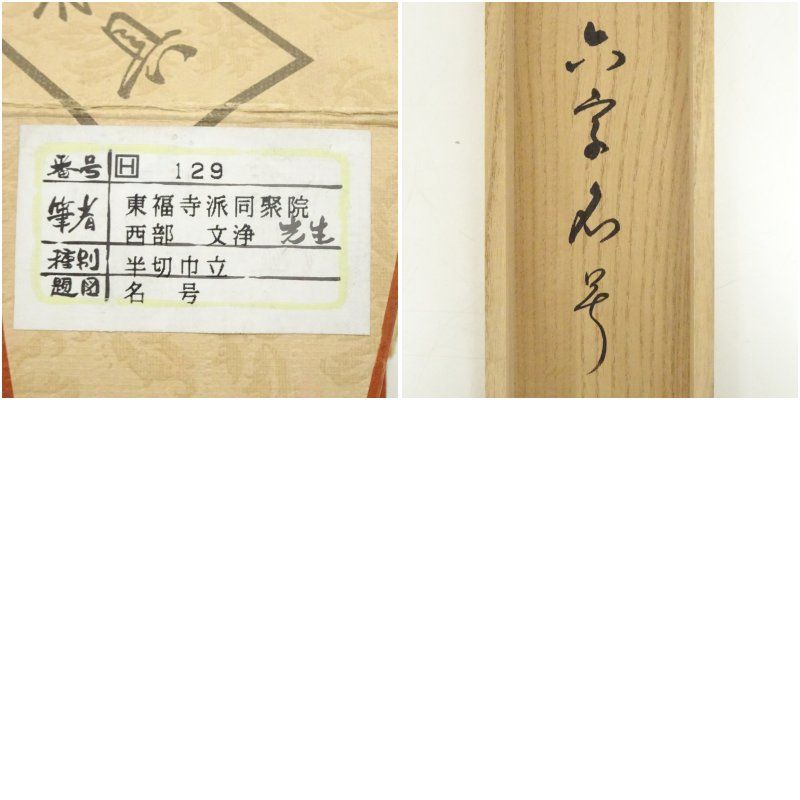 番号 H 129
筆者 東福寺派同聚院
西部 文浄 先生
種別 半切巾立
題図 名号
六字名号